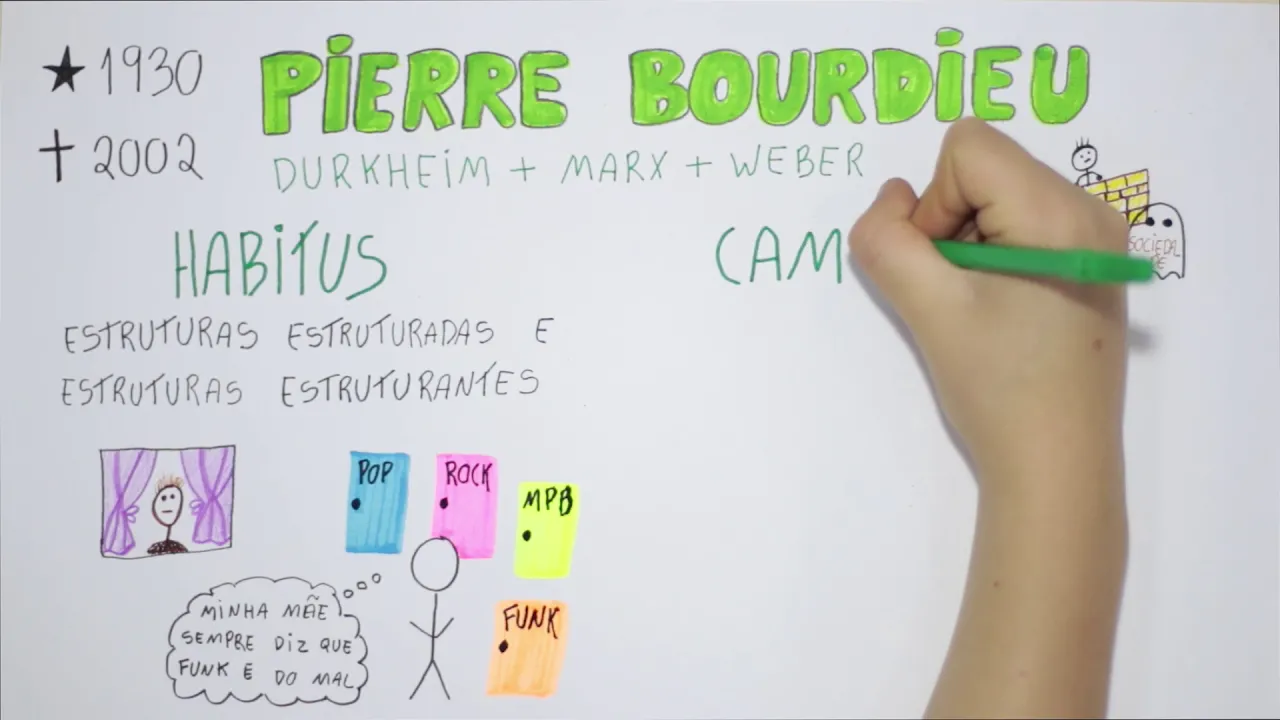 ★ 1930
PIERRE BOURDIEU
† 2002
DURKHEIM + MARX + WEBER
HABITUS
CAM
SOCIEDA
DE
ESTRUTURAS ESTRUTURADAS E
ESTRUTURAS ESTRUTURANTES
POP
ROCK
MPB
FUNK
MINHA MÃE
SEMPRE DIZ QUE
FUNK E DO MAL